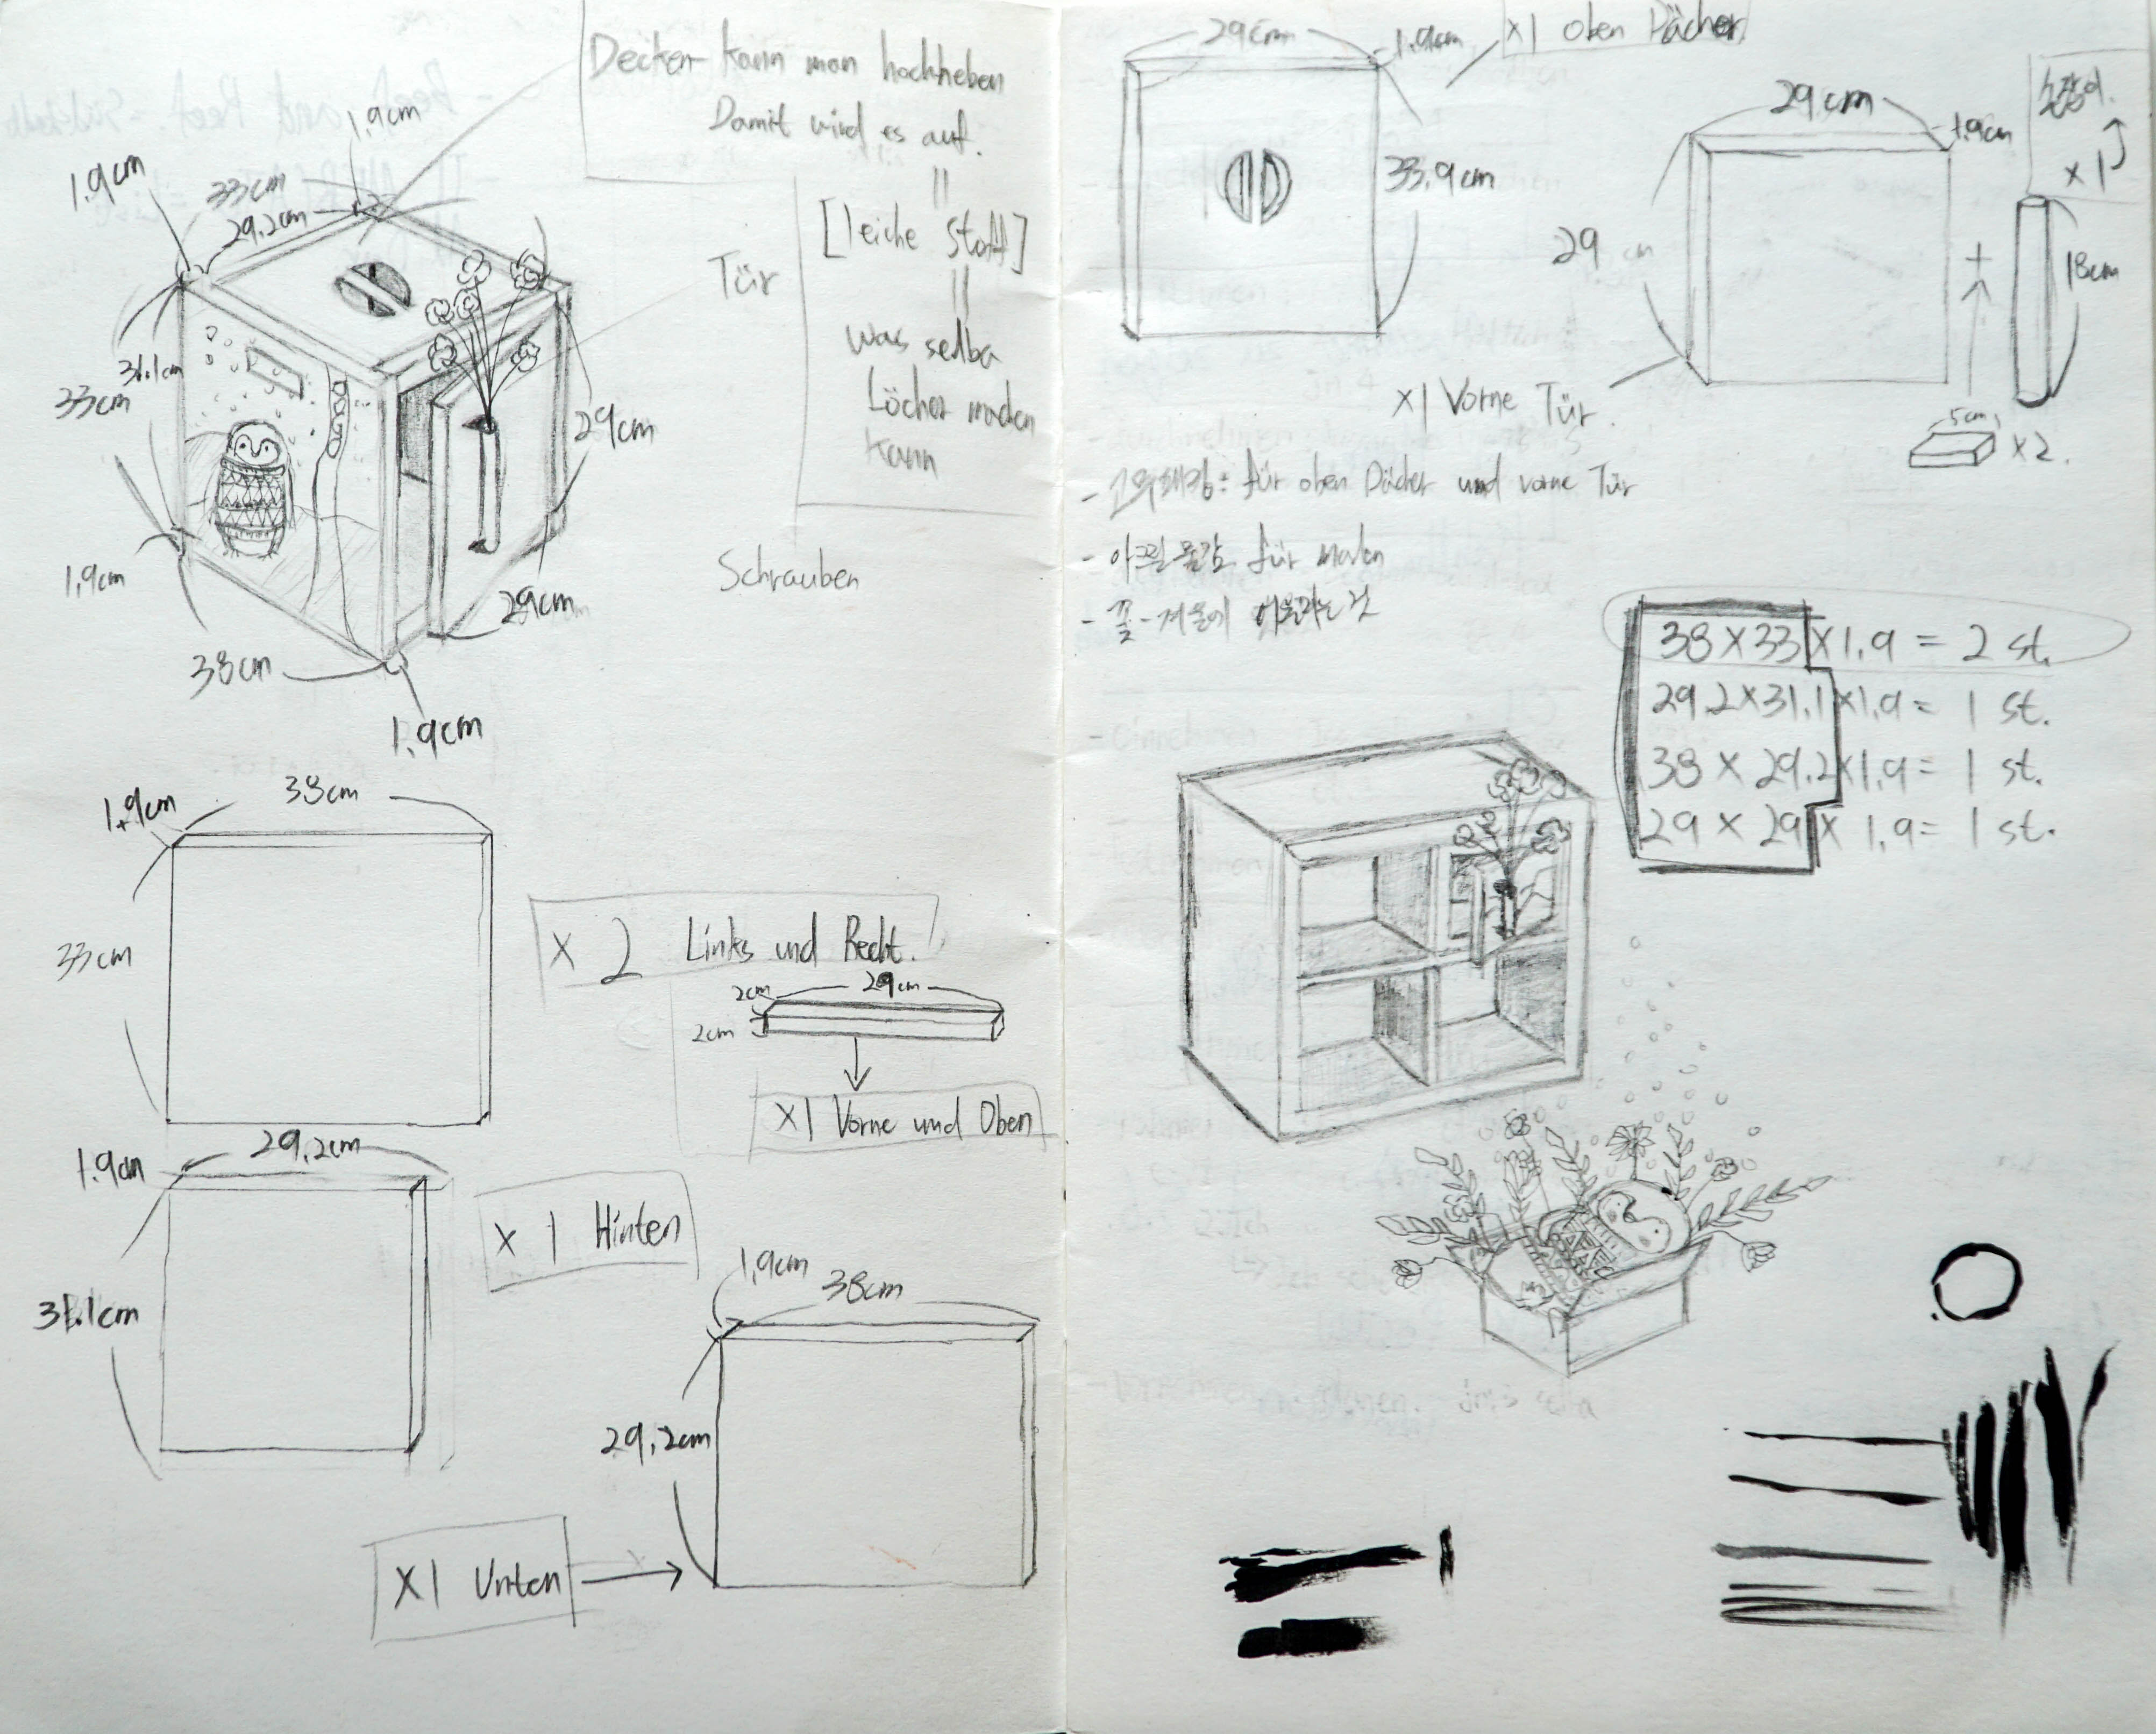 Decker kann man hochheben
Damit wird es auf.
[leiche Stoff]
was selba
Löcher machen
kann
Tür
Schrauben
1.9cm
1.9cm
33cm
29.2cm
31.1cm
33cm
29cm
1.9cm
29cm
38cm
1.9cm
1.9cm
38cm
33cm
x 2 Links und Recht.
2cm
29cm
2cm
x1 Vorne und Oben
29.2cm
1.9cm
31.1cm
x 1 Hinten
1.9cm
38cm
29.2cm
x1 Unten
29cm
1.9cm
x1 oben Dächer
33.9cm
29cm
1.9cm
29 cm
x1 Vorne Tür.
손잡이.
x1
+
18cm
5cm
x2.
- 고무패킹: für oben Dächer und vorne Tür
- 아크릴 물감 für malen
38 x 33 x 1.9 = 2 st.
29.2 x 31.1 x 1.9 = 1 st.
38 x 29.2 x 1.9 = 1 st.
29 x 29 x 1.9 = 1 st.